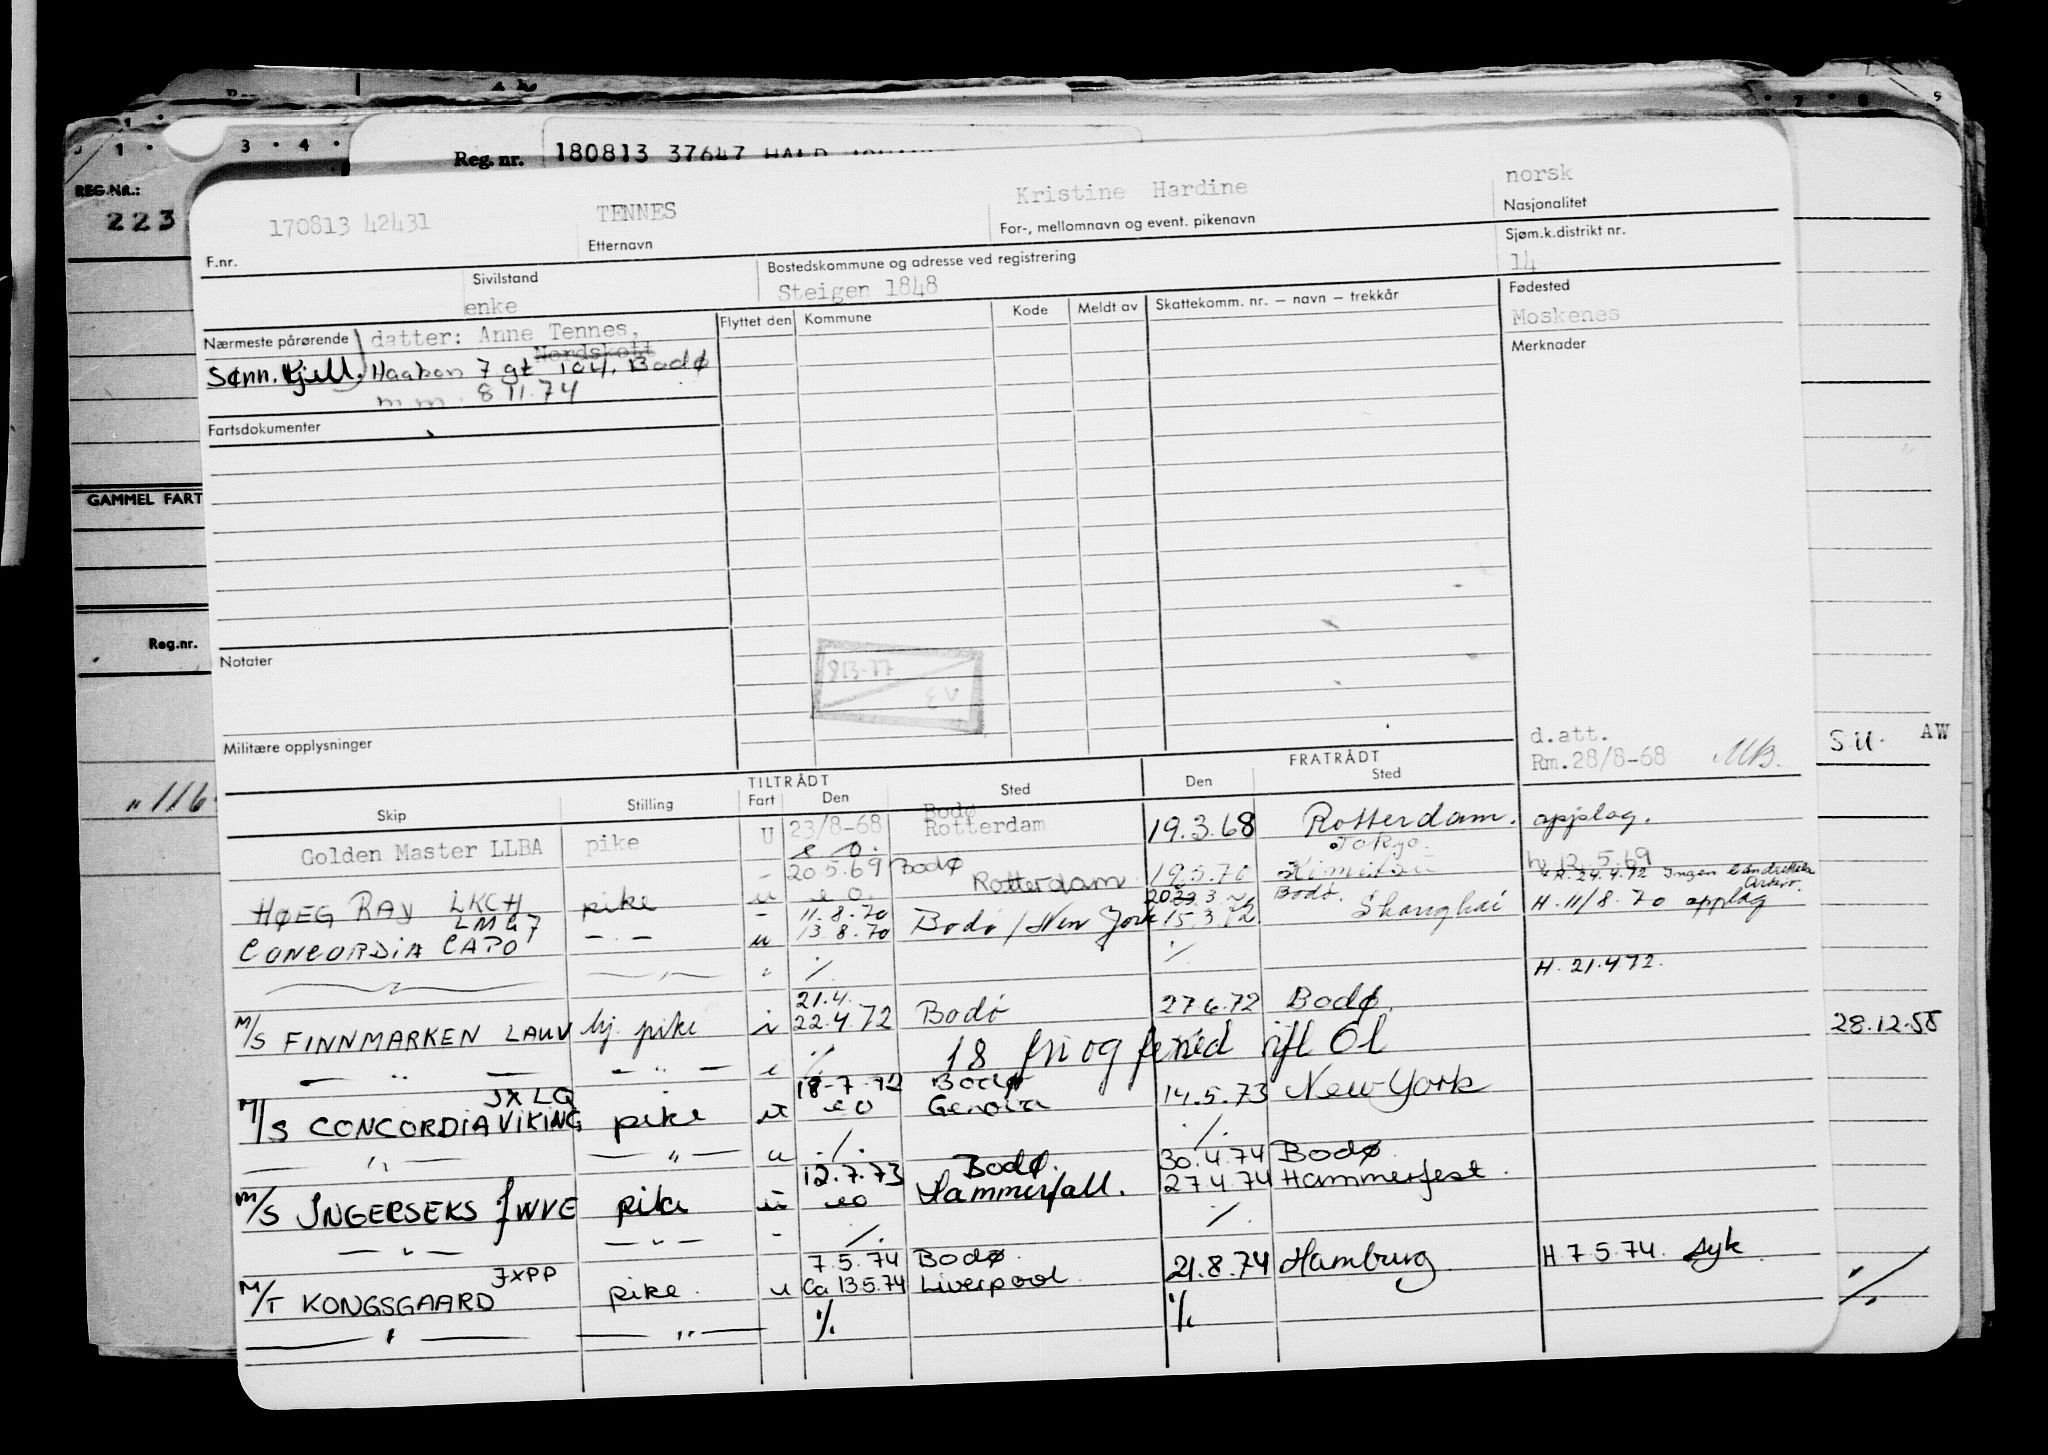 1 3 4 7 8 9
REG.NR.:
223
Reg. nr. 180813 37647 HALD
170813 42431 TENNES Kristine Hardine norsk
F.nr. Etternavn For-, mellomnavn og event. pikenavn Nasjonalitet
Sivilstand Bostedskommune og adresse ved registrering Sjøm.k.distrikt nr.
enke Steigen 1848 14
Nærmeste pårørende datter: Anne Tennes, Flyttet den Kommune Kode Meldt av Skattekomm. nr. – navn – trekkår Fødested
Nordskott Moskenes
Sønn. Kjell. Haakon 7 gt 104. Bodø Merknader
m.m. 8.11.74
Fartsdokumenter
GAMMEL FART
Reg.nr.
Notater
813-77
Militære opplysninger
d.att.
Rm.28/8-68 MB.
S.U. AW
"116
TILTRÅDT FRATRÅDT
Skip Stilling Fart Den Sted Den Sted
Golden Master LLBA pike U 23/8-68 Bodø Rotterdam 19.3.68 Rotterdam. opplag.
20.5.69 Bodø Tokyo. 12.5.69
HØEG RAY LKCH pike u e.o. Rotterdam 19.5.70 Kimitsu H. 24.4.72 Ingen
LMG7 - 11.8.70 Bodø. H. 11/8.70 opplag
CONCORDIA CAPO - . - u 13.8.70 Bodø / New York 15.3.72 Shanghai
- " - ./. ./. H. 21.4.72.
21.4.
M/S FINNMARKEN LAUV hj. pike i 22.4.72 Bodø 27.6.72 Bodø.
- " - - " - i ./. 18 fri og feried ifl Ol
28.12.55
JXLQ 18-7-72 Bodø
M/S CONCORDIA VIKING pike u eo Genova 14.5.73 New York
- " - - " - u ./. ./.
12.7.73 Bodø. 30.4.74 Bodø
M/S INGERSEKS JWVE pike u eo Hammerfall. 27.4.74 Hammerfest.
- " - - " - - ./. ./.
JXPP 7.5.74 Bodø. H 7.5.74. syk
M/T KONGSGAARD pike. u Ca 13.5.74 Liverpool. 21.8.74 Hamburg
- " - - " - ./. ./.
./.